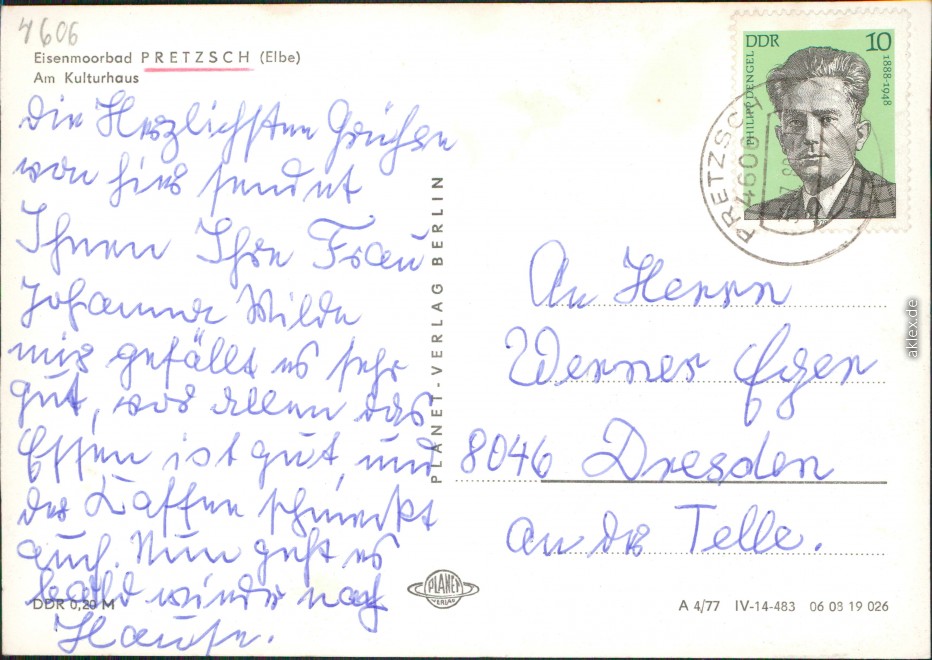 4606
Eisenmoorbad PRETZSCH (Elbe)
Am Kulturhaus
die Herzlichsten Grüße
von hier sendet
Ihnen Ihre Frau
Johanna Wilde
mir gefällt es sehr
gut, vor allem das
Essen ist gut, und
der Kaffee schmeckt
auch. Nun geht es
bald wieder nach
Hause.
DDR 0,20 M
PLANET-VERLAG BERLIN
PLANET
VERLAG
DDR 10
PHILIPP DENGEL
1888-1948
PRETZSCH
4606
An Herrn
Werner
8046 Dresden
an der Telle.
A 4/77 IV-14-483 06 03 19 026
aklex.de